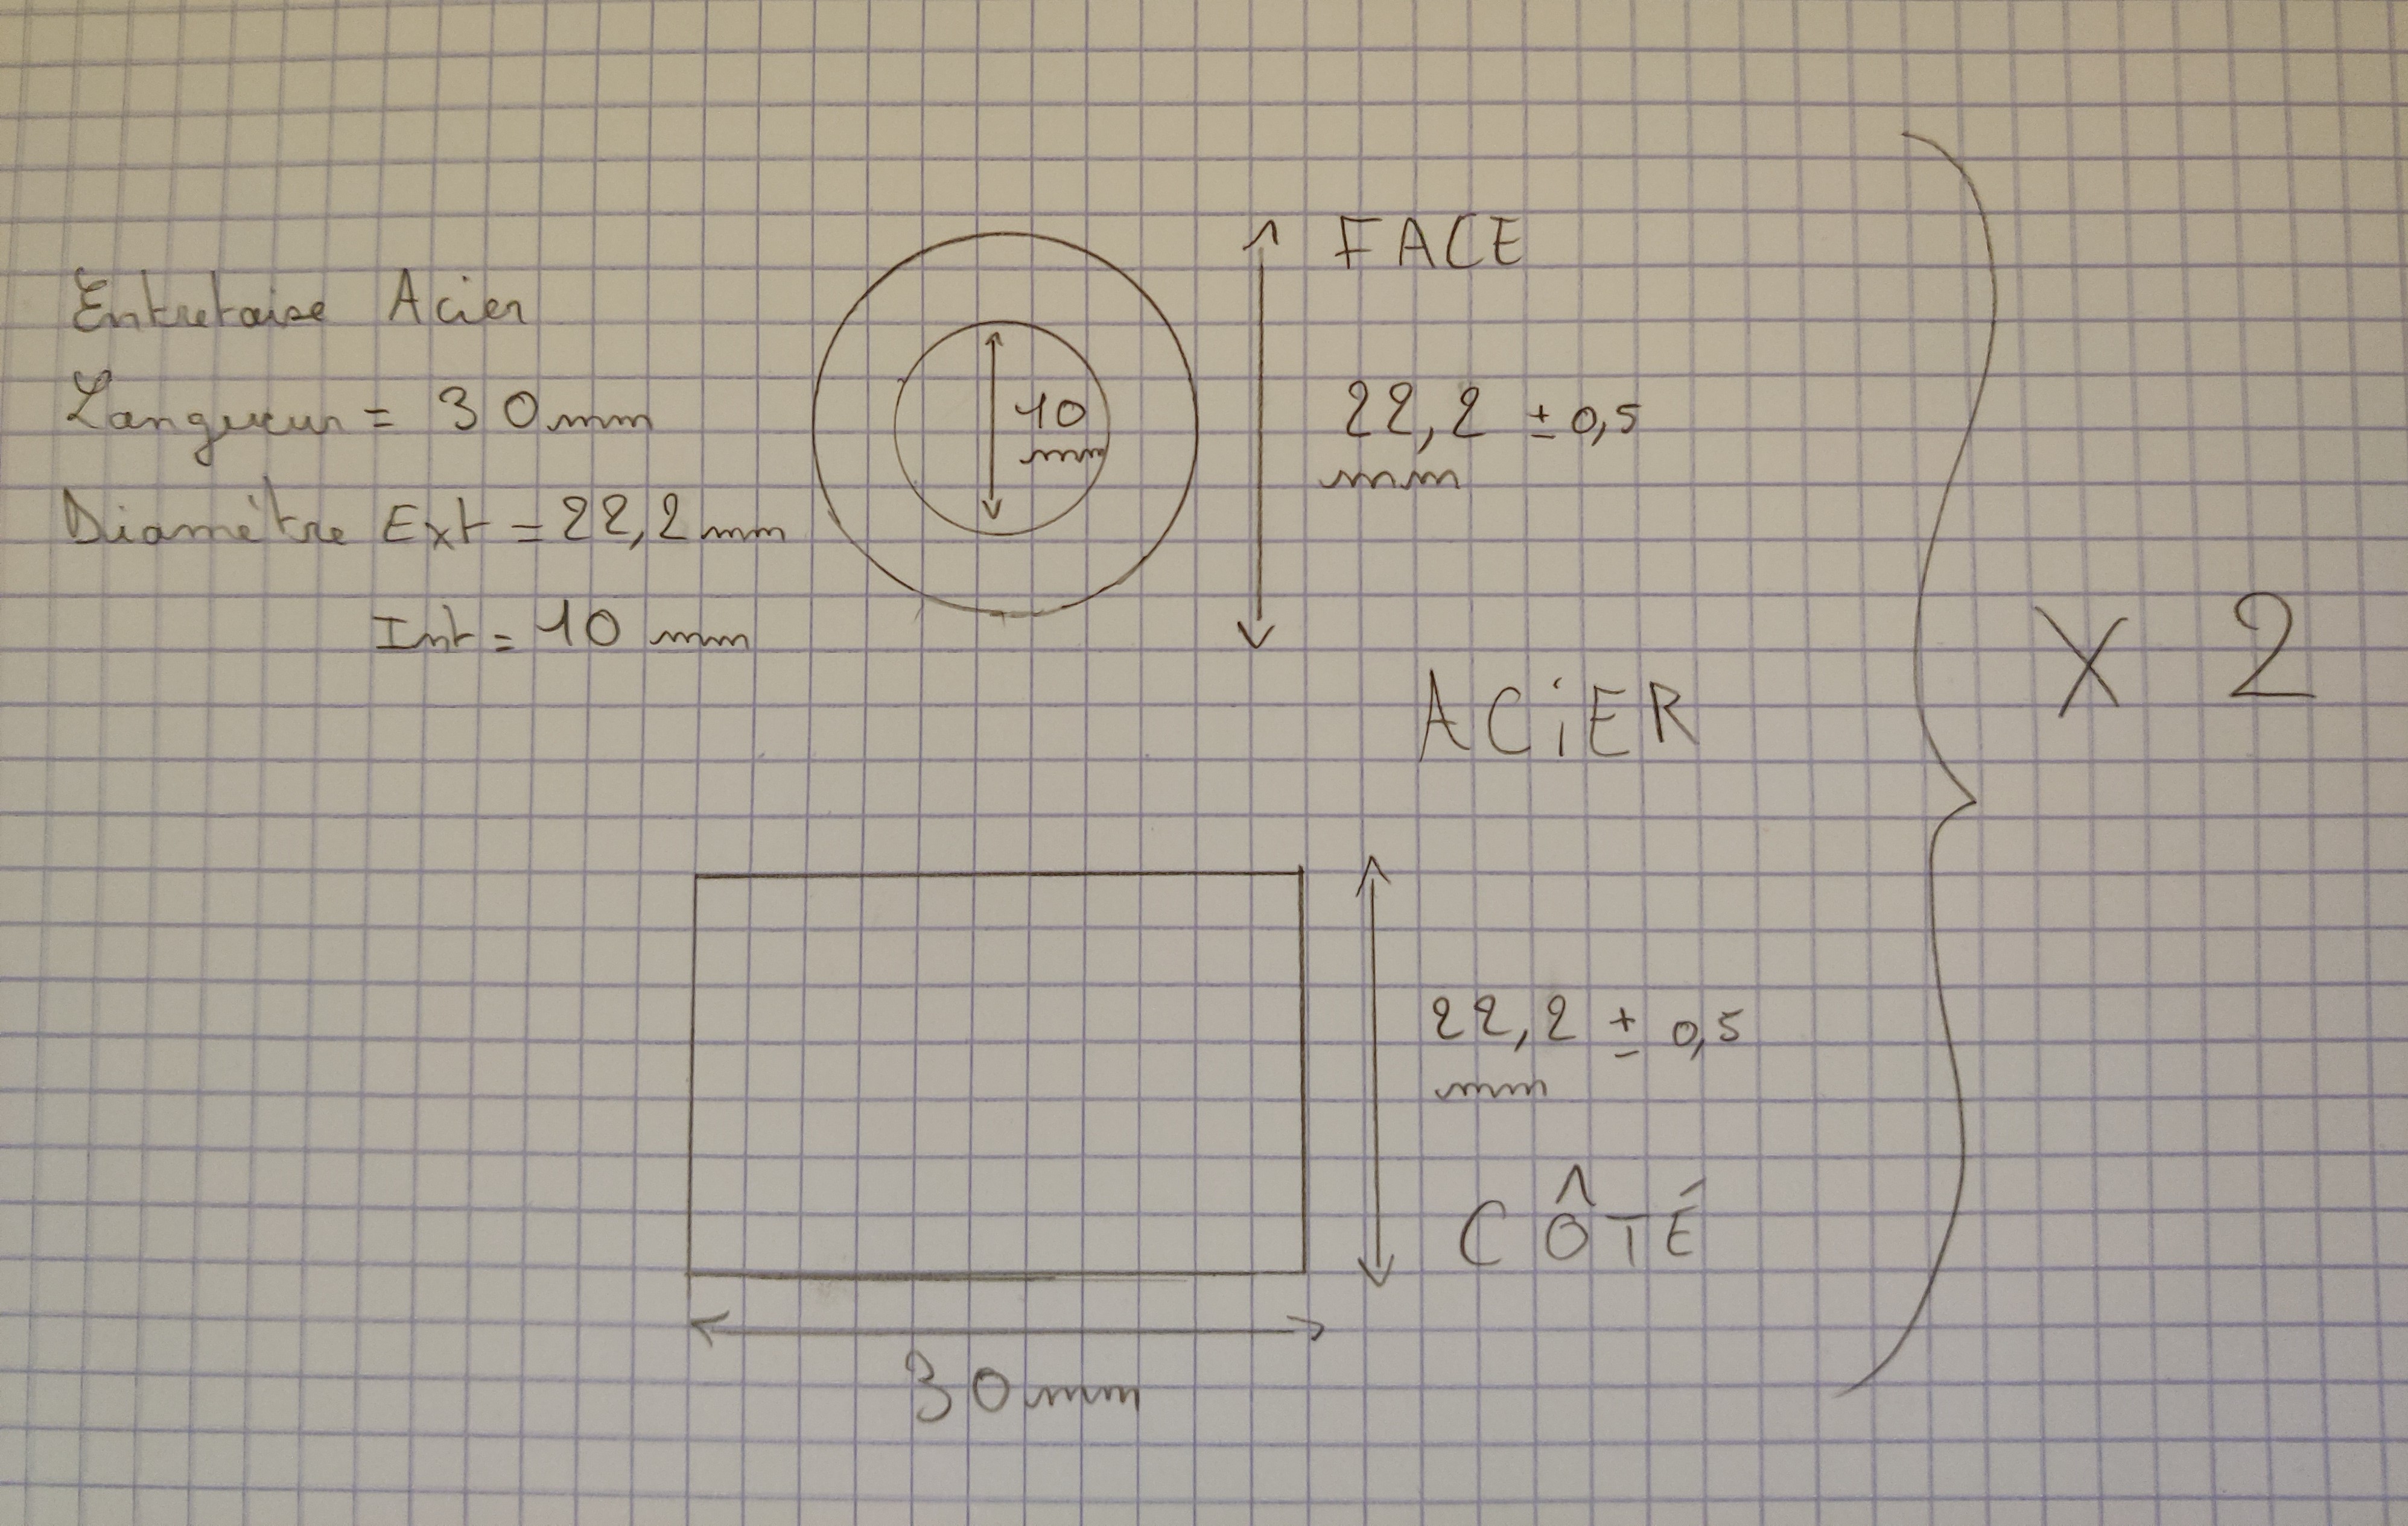 FACE
Entretoise Acier
Longueur = 30mm
Diamètre Ext = 22,2mm
Int = 10 mm
10
mm
22,2 ± 0,5
mm
X 2
ACiER
22,2 ± 0,5
mm
CÔTÉ
30mm